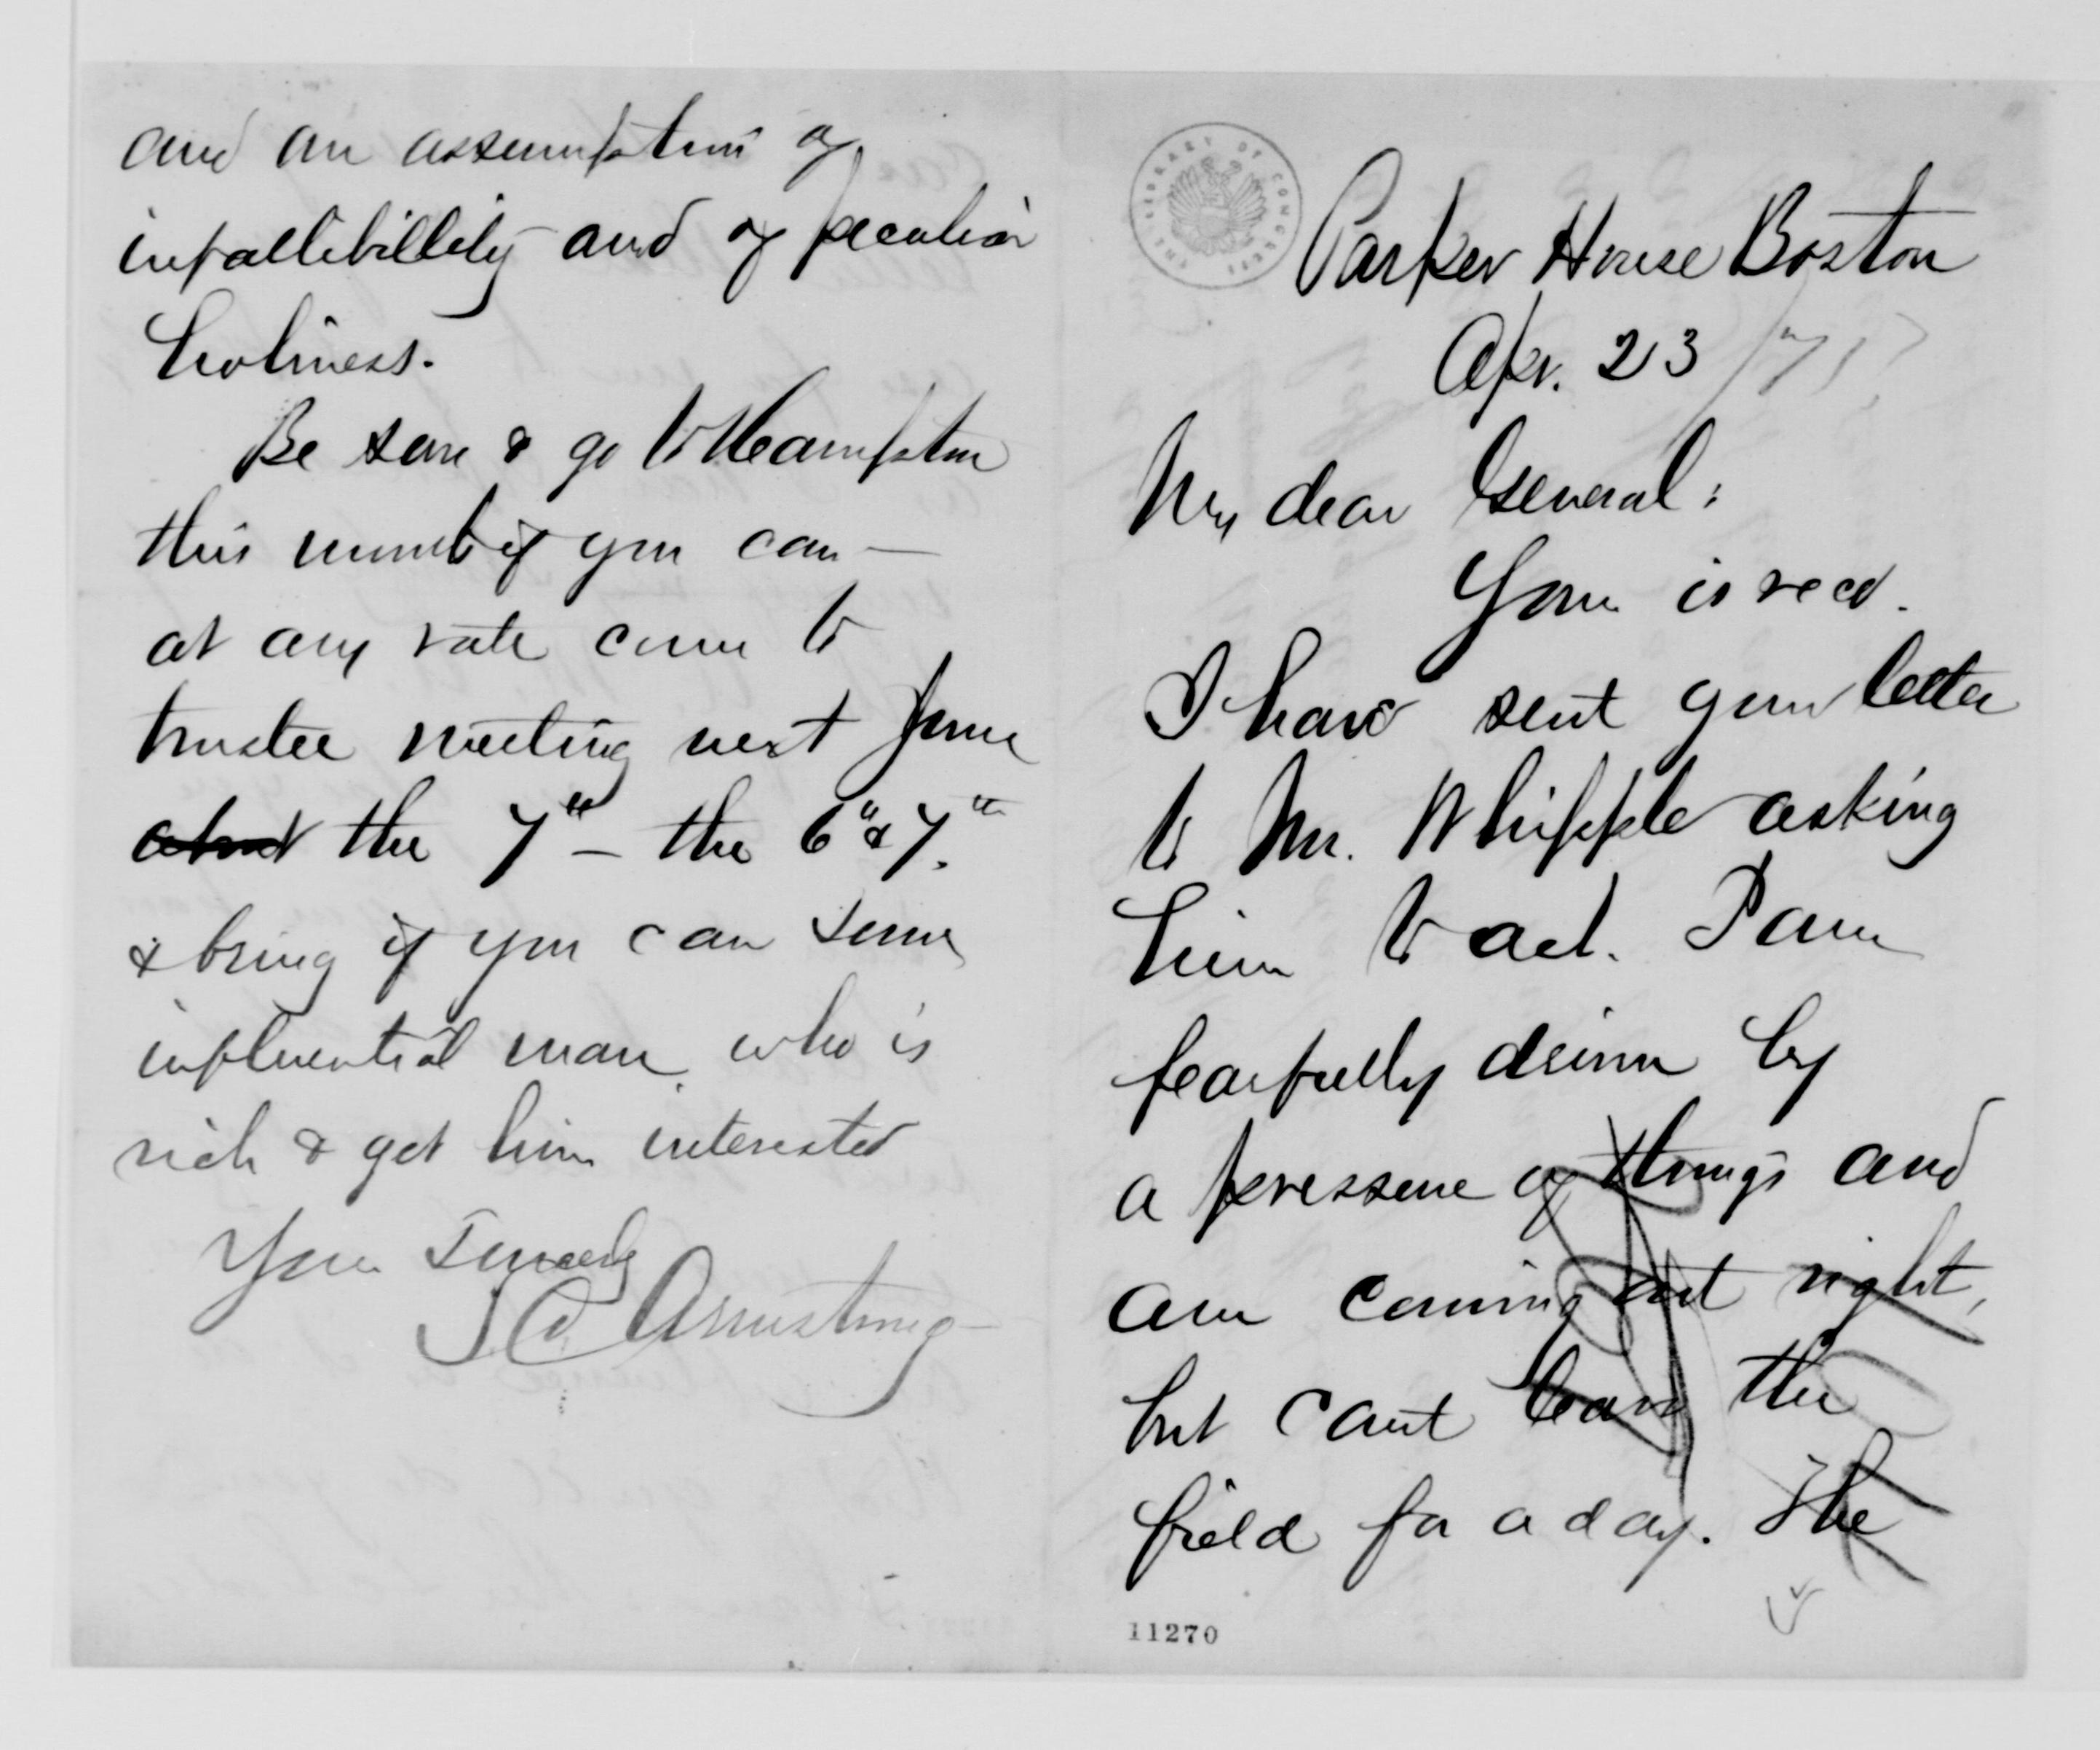 and an assumption of
infallibillity and of peculiar
holiness.
Be sure & go to Hampton
this month if you can —
at any rate come to
trustee meeting next June
about the 7th — the 6th & 7th.
& bring if you can some
influential man who is
rich & get him interested
Yours Sincerely
S C Armstrong
THE LIBRARY OF CONGRESS
Parker House Boston
Apr. 23 /71?
My dear General:
Yours is recd.
I have sent your letter
to Mr. Whipple asking
him to act. I am
fearfully driven by
a pressure of things and
am coming out right,
but cant leave the
field for a day. The
11270